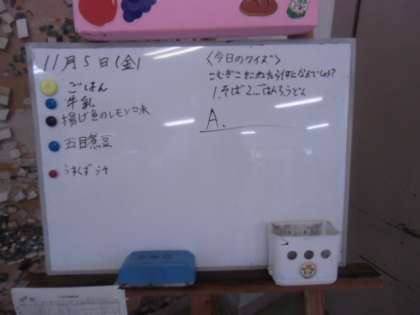 11月5日(金)
ごはん
牛乳
揚げ魚のレモン味
五目煮豆
うすくず汁
<今日のクイズ>
こむぎこをこねたら何になるでしょう?
1.そば 2.ごはん 3.うどん
A.